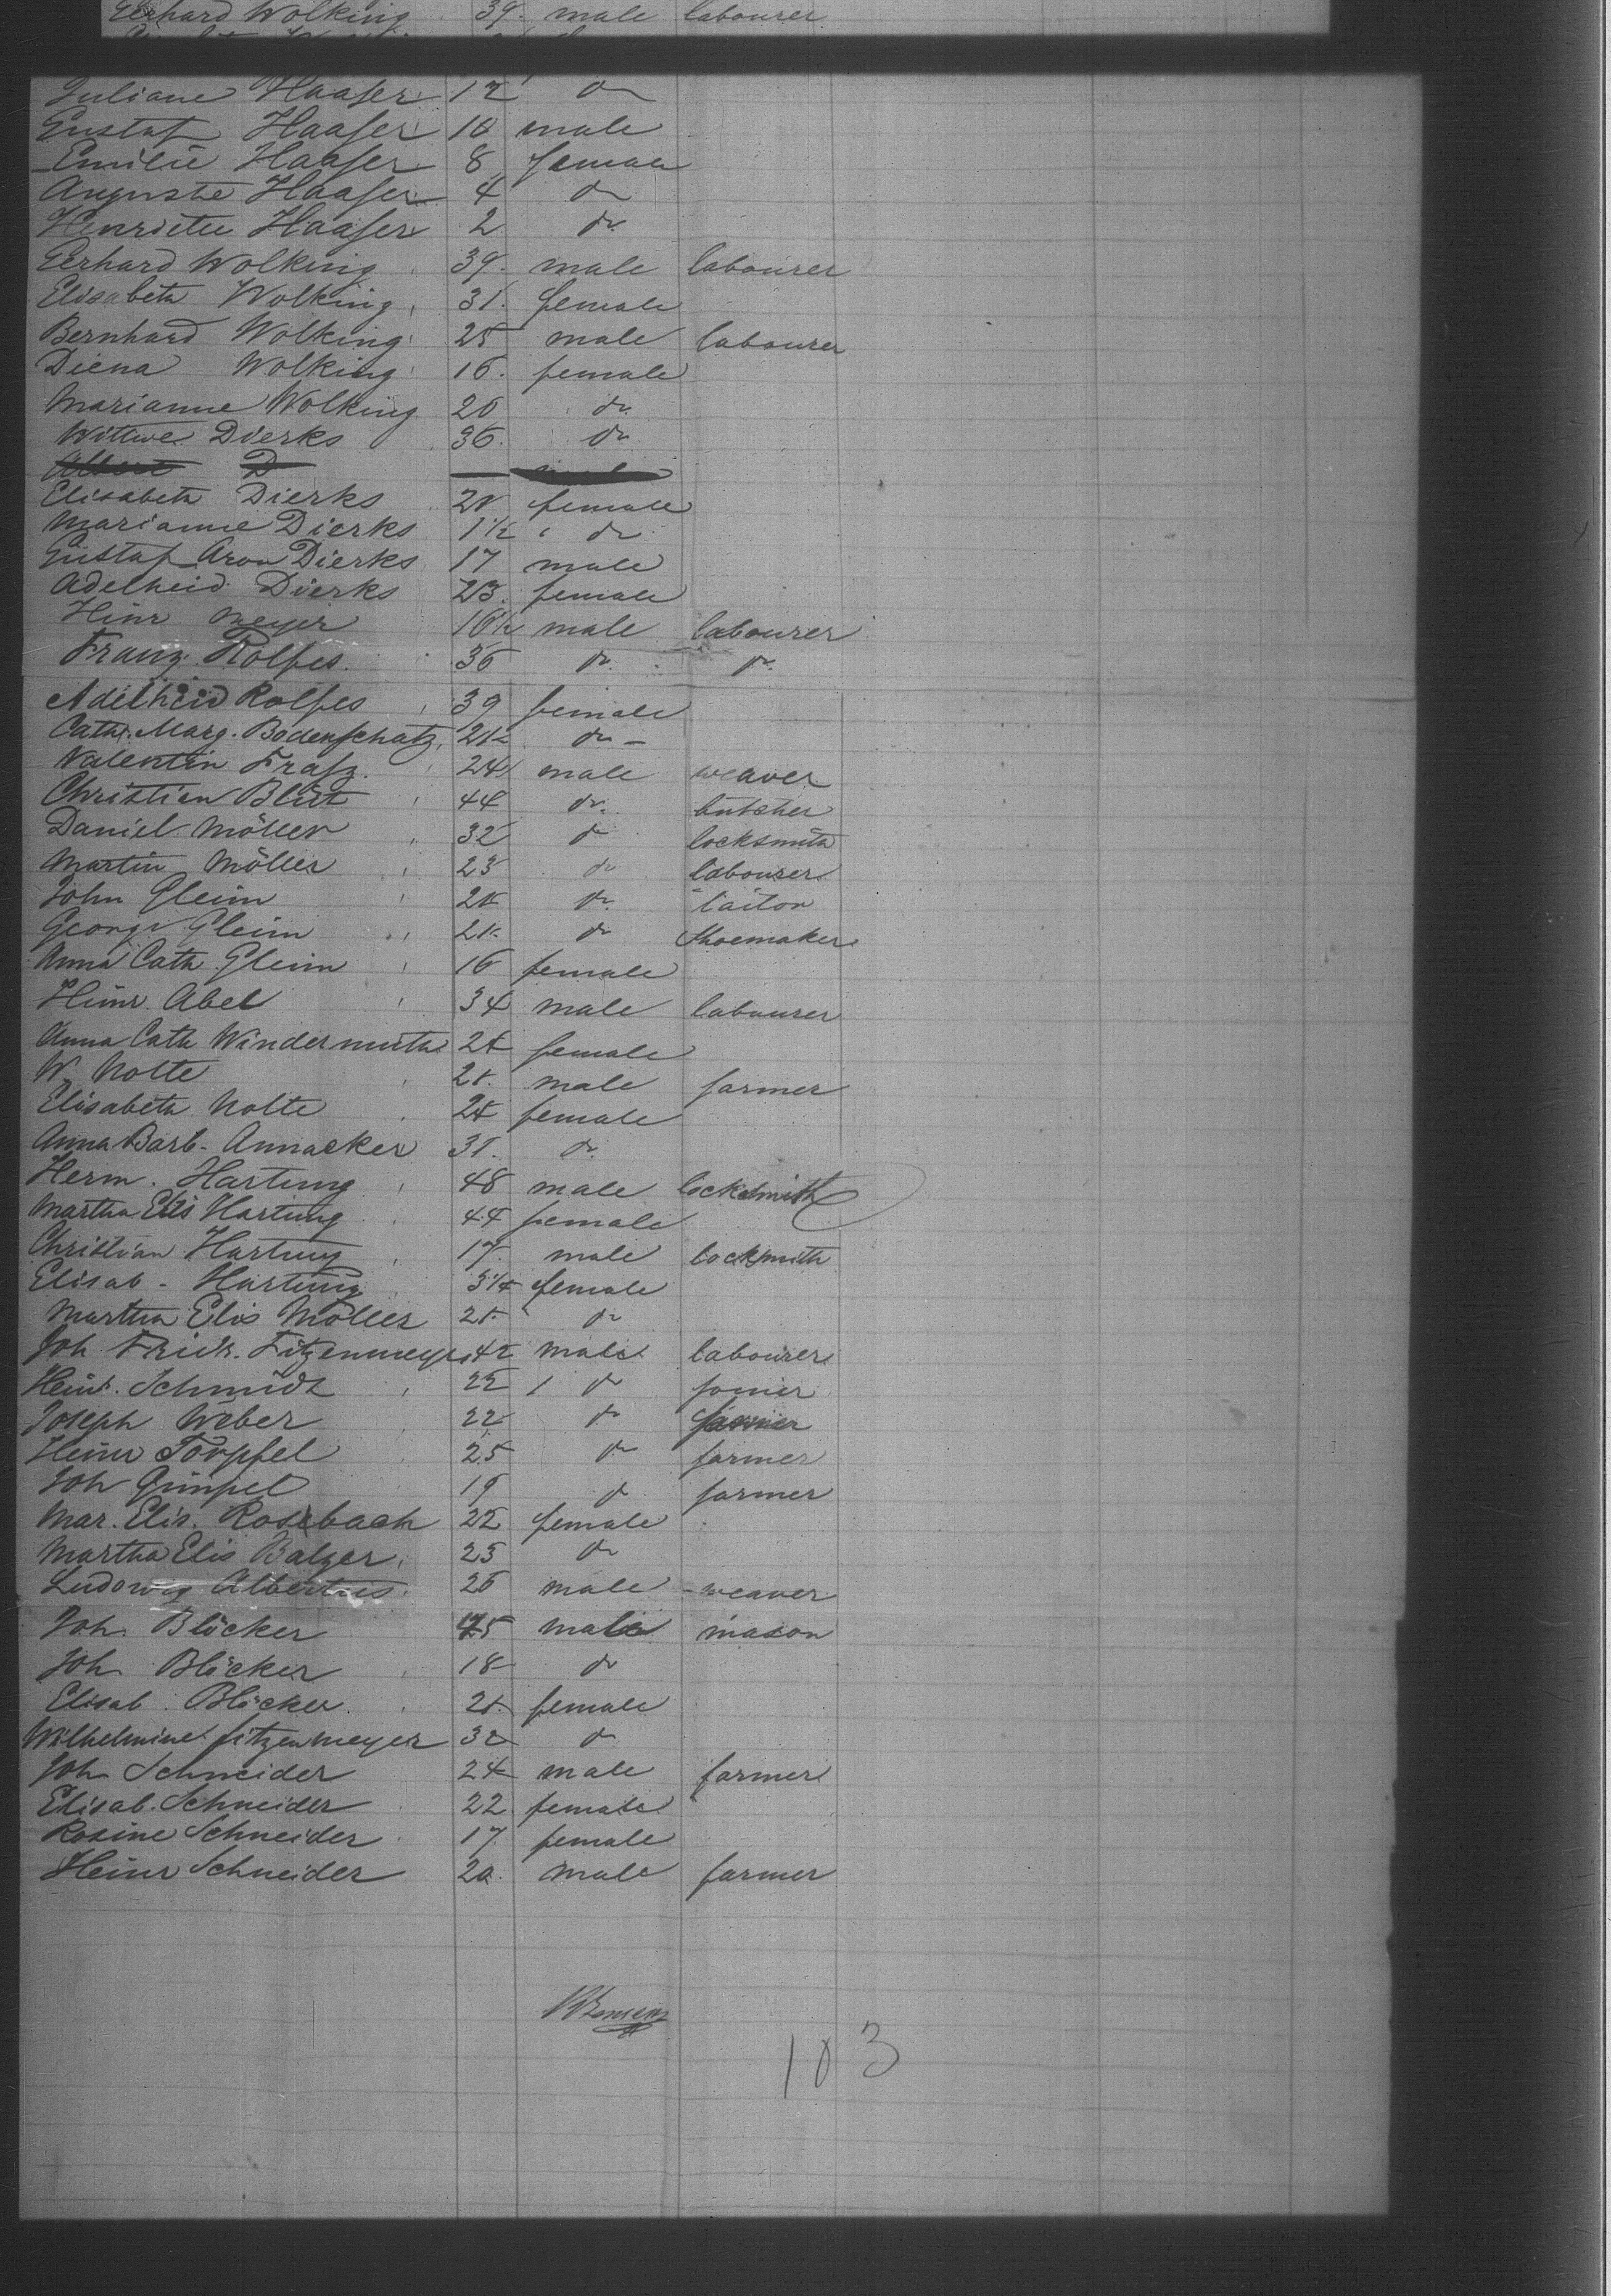 Gerhard Wolking 39. male labourer
Juliane Haaser 12 do
Gustaf Haaser 10 male
Emilie Haaser 8 female
Auguste Haaser 4 do
Henriette Haaser 2 do
Gerhard Wolking 39. male labourer
Elisabeth Wolking 31. female
Bernhard Wolking 25 male labourer
Diena Wolking 16. female
Marianne Wolking 20 do
Wittwe Dierks 36. do
Albert D
Elisabeth Dierks female
Marianne Dierks 1½ do
Gustaf Aron Dierks 17 male
Adelheid Dierks 23. female
Hinr Meyer male labourer
Franz Rolfes. 36 do. do.
Adelheid Rolfes 39 female
Cath. Marg. Bodenschatz do
Valentin 24 male weaver
Christian 44 do. butcher
Daniel Möller 32 do locksmith
Martin Möller 23 do labourer
John Gleim do. tailor
George Gleim do Shoemaker
Anna Cath Gleim 16 female
Hinr. Abel 34 male labourer
Anna Cath Windermuth female
W. Nolte male farmer
Elisabeth Nolte female
Anna Barb. Annacker 31. do.
Herm. Hartung 48 male locksmith
Martha Elis Hartung 44 female
Christian Hartung 17. male locksmith
Elisab - Hartung 3¼ female
Martha Elis Möller do
Joh Fitzenmeyer 42 male labourer
Heinr. Schmidt 22 do farmer
Joseph Weber 22 do farmer
Heinr Törpfel 25 do farmer
Joh Gimpel 19 do farmer
Mar. Elis. Rosebach 22 female
Martha Elis Balzer 23 do
Ludowig Albertus 26 male weaver
Joh. Blöcker 45 male mason
Joh Blöcker 18 do
Elisab. Blöcker female
Wilhelmine Fitzenmeyer 32 do
Joh Schneider 24 male farmer
Elisab. Schneider 22 female
Rosine Schneider 17. female
Heinr Schneider 20. male farmer
103